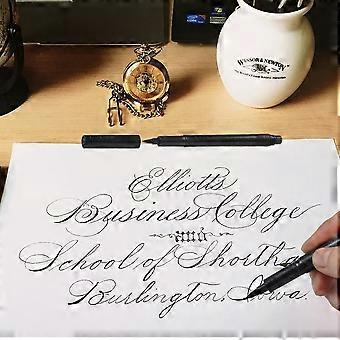 WINSOR & NEWTON
Elliotts
Business College
and
School of Shortha
Burlington, Iowa.